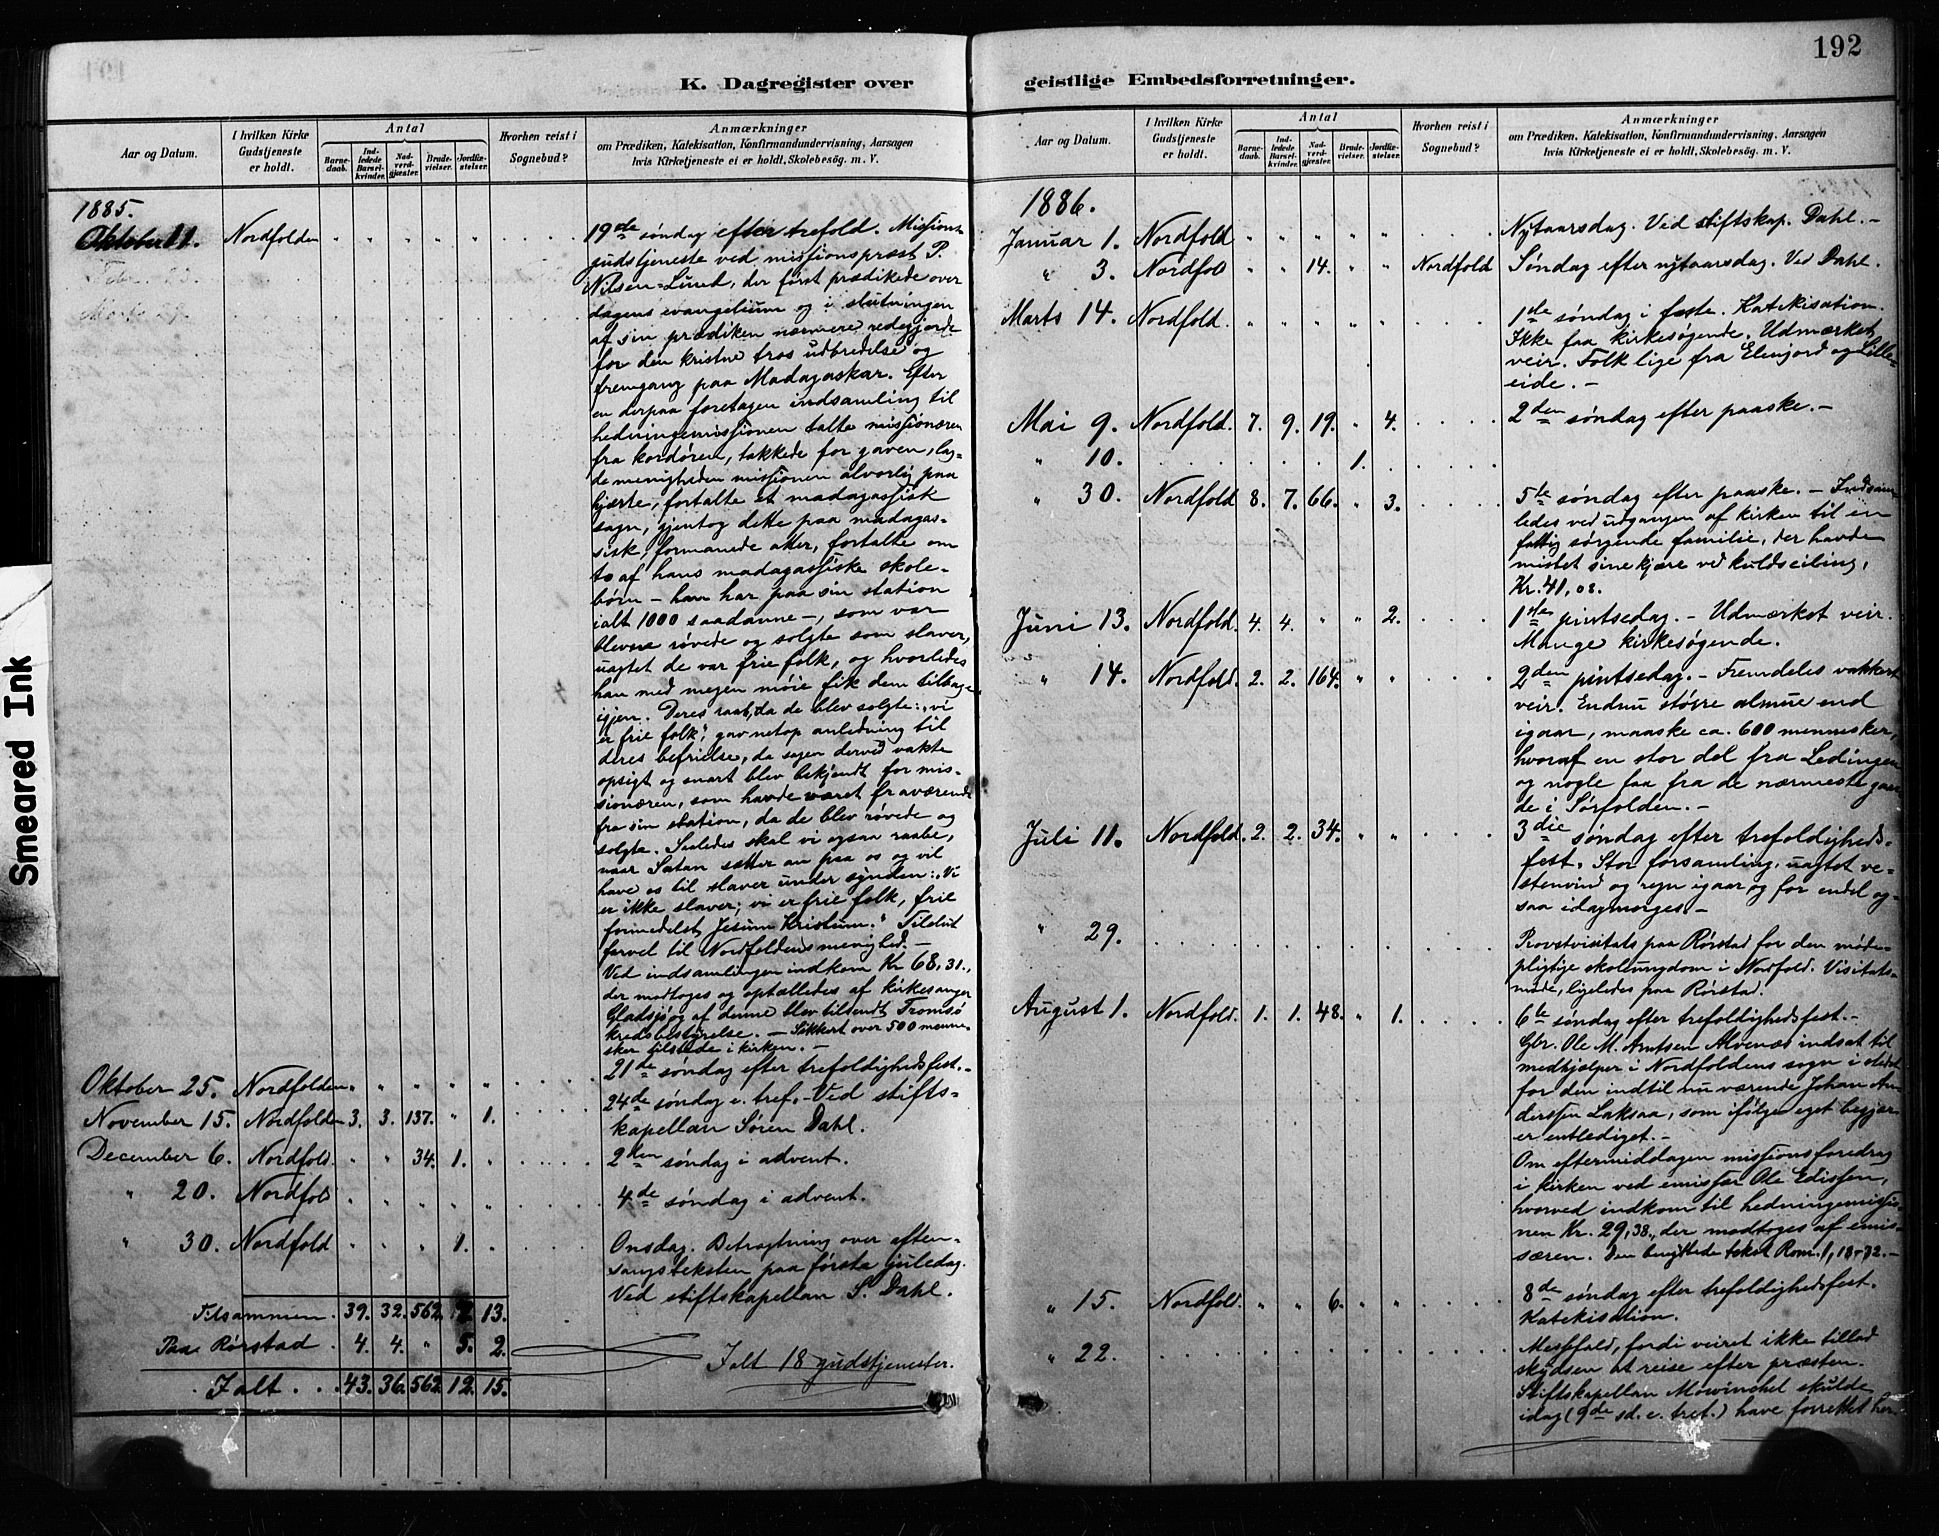 192
K. Dagregister over
geistlige Embedsforretninger.
Aar og Datum.
I hvilken Kirke Gudstjeneste er holdt.
Antal
Barnedaab.
Indledede Barselkvinder.
Nadverdgjæster.
Brudevielser.
Jordfæstelser.
Hvorhen reist i Sognebud?
Anmærkninger
om Prædiken, Katekisation, Konfirmandundervisning, Aarsagen
hvis Kirketjeneste ei er holdt, Skolebesög. m. V.
1885.
Oktober 11. Nordfolden " " " " " 19de søndag efter trefold. Missions-
gudstjeneste ved missionsprest P.
Nilsen-Lund, der først prædikede over
dagens evangelium og i slutningen
af sin prædiken nærmere redegjorde
for den kristne tros udbredelse og
fremgang paa Madagaskar. Efter
en derpaa foretagen indsamling til
hedningemissionen talte missionæren
fra kordøren, takkede for gaven, lag-
de menigheden missionen alvorlig paa
hjerte, fortalte et madagassisk
sagn, gjentog dette paa madagas-
sisk, formanede atter, fortalte om
to af hans madagassiske skole-
børn – han har paa sin station
ialt 1000 saadanne –, som var
blevne røvede og solgte som slaver,
uagtet de var frie folk, og hvorledes
han med megen møie fik dem tilbage
igjen. Deres raab, da de blev solgte: "vi
er frie folk", gav netop anledning til
deres befrielse, da sagen derved vakte
opsigt og snart blev bekjendt for mis-
sionæren, som havde været fraværende
fra sin station, da de blev røvede og
solgte. Saaledes skal vi ogsaa raabe,
naar Satan sætter an paa os og vil
have os til slaver under synden: "Vi
er ikke slaver; vi er frie folk, frie
formedelst Jesum Kristum." Tilslut
farvel til Nordfoldens menighed. –
Ved indsamlingen indkom Kr 68,31.,
der modtoges og optælledes af kirkesanger
Gladsjø og af denne blev tilsendt Tromsø
kredsbestyrelse. – Sikkert over 500 menne-
sker tilstede i kirken. –
Oktober 25. Nordfolden " " " " " 21de søndag efter trefoldighedsfest. –
November 15. Nordfolden 3. 3. 137. " 1. 24de søndag e. tref. – Ved stifts-
kapellan Søren Dahl.
December 6. Nordfold. " " 34. 1. " 2den søndag i advent.
" 20. Nordfold " " " " " 4de søndag i advent.
" 30. Nordfold " " " 1. " Onsdag. Betragtning over aften-
sangsteksten paa første juledag.
Ved stiftskapellan S. Dahl.
Tilsammen. 39. 32. 562. 13.
Paa Rørstad. 4. 4. " 5. 2.
Ialt 18 gudstjenester.
Ialt . . 43. 36. 562. 12. 15.
Aar og Datum.
I hvilken Kirke Gudstjeneste er holdt.
Antal
Barnedaab.
Indledede Barselkvinder.
Nadverdgjæster.
Brudevielser.
Jordfæstelser.
Hvorhen reist i Sognebud?
Anmærkninger
om Prædiken, Katekisation, Konfirmandundervisning, Aarsagen
hvis Kirketjeneste ei er holdt, Skolebesög. m. V.
1886.
Januar 1. Nordfold " " " " " Nytaarsdag. Ved stiftskap. Dahl. –
" 3. Nordfold " " 14. " " Nordfold Søndag efter nytaarsdag. Ved Dahl.
Marts 14. Nordfold. " " " " " 1ste søndag i faste. Katekisation.
Ikke faa kirkesøgende. Udmærket
veir. Folk lige fra Elengjord og Lille-
eide. –
Mai 9. Nordfold. 7. 9. 19. " 4. 2den søndag efter paaske. –
" 10. 1.
" 30. Nordfold 8. 7. 66. " 3. 5te søndag efter paaske. – Indsam-
ledes ved udgangen af kirken til en
fattig sørgende familie, der havde
mistet sine kjære ved kuldseiling,
Kr. 41,08.
Juni 13. Nordfold. 4. 4. " " 2. 1ste pintsedag. – Udmærket veir.
Mange kirkesøgende.
" 14. Nordfold. 2. 2. 164. " " 2den pintsedag. – Fremdeles vakkert
veir. Endnu større almue end
igaar, maaske ca. 600 mennesker,
hvoraf en stor del fra Ledingen
og nogle faa fra de nærmeste gaar-
de i Sørfolden. –
Juli 11. Nordfold. 2. 2. 34. " " 3die søndag efter trefoldigheds-
fest. Stor forsamling, uagtet ve-
stenvind og regn igaar og for endel og-
saa idagmorges –
" 29. Provstvisitats paa Rørstad for den møde-
pligtige skoleungdom i Nordfold. Visitats-
møde, ligeledes paa Rørstad.
August 1. Nordfold. 1. 1. 48. " 1. 6te søndag efter trefoldighedsfest. –
Gbr. Ole M. Arntsen Alvenæs indsat til
medhjælper i Nordfoldens sogn i stedet
for den indtil nu værende Johan An-
derssen Laksaa, som ifølge eget begjær
er entlediget. –
Om eftermiddagen missionsforedrag
i kirken ved emissær Ole Edissen,
hvorved indkom til hedningemissio-
nen Kr. 29,38., der modtoges af emis-
særen. Den benyttede tekst Rom. 1, 18-32. –
" 15. Nordfold. " " 6. " " 8de søndag efter trefoldighedsfest.
Katekisation.
" 22. Messfald, fordi veiret ikke tillod
skydsen at reise efter præsten.
Stiftskapellan Mowinchel skulde
idag (9de sd. e. tref.) have forrettet her.
Smeared Ink